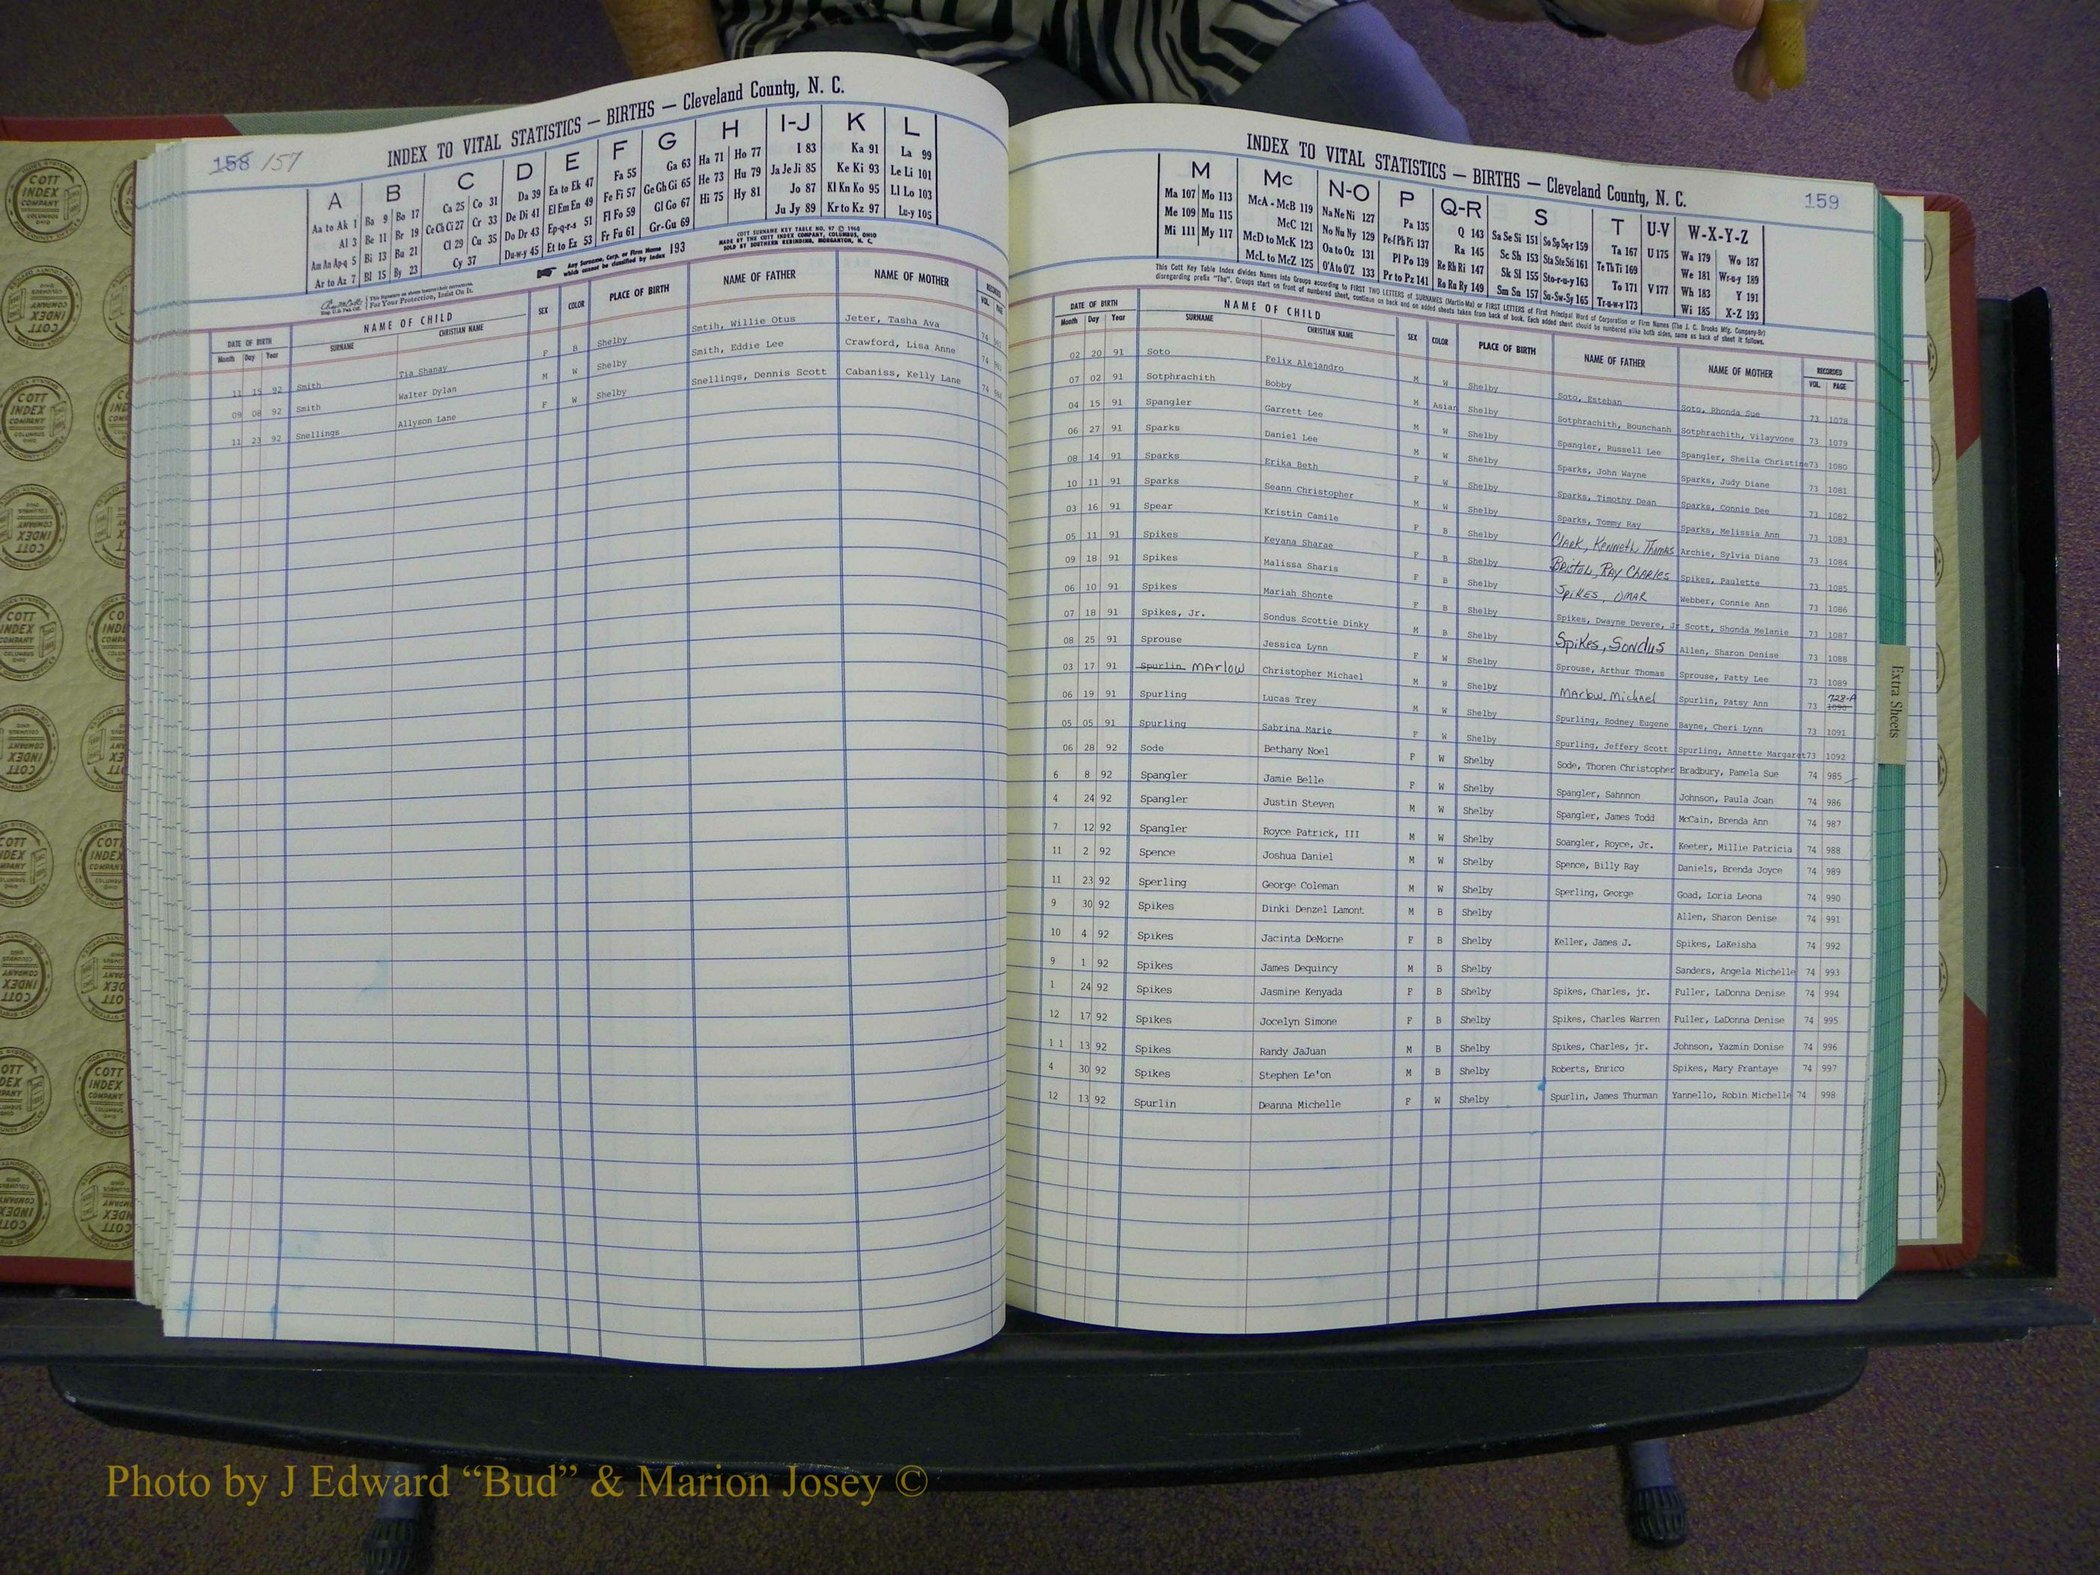 158 /57
INDEX TO VITAL STATISTICS — BIRTHS — Cleveland County, N. C.
A B C D E F G H I-J K L
Aa to Ak 1 Ba 9 Bo 17 Ca 25 Co 31 Da 39 Ea to Ek 47 Fa 55 Ga 63 Ha 71 Ho 77 I 83 Ka 91 La 99
Al 3 Be 11 Br 19 Ce Ch Ci 27 Cr 33 De Di 41 El Em En 49 Fe Fi 57 Ge Gh Gi 65 He 73 Hu 79 Ja Je Ji 85 Ke Ki 93 Le Li 101
Am An Ap-q 5 Bi 13 Bu 21 Cl 29 Cu 35 Do Dr 43 Ep-q-r-s 51 Fl Fo 59 Gl Go 67 Hi 75 Hy 81 Jo 87 Kl Kn Ko 95 Ll Lo 103
Ar to Az 7 Bl 15 By 23 Cy 37 Du-w-y 45 Et to Ez 53 Fr Fu 61 Gr-Gu 69 Ju Jy 89 Kr to Kz 97 Lu-y 105
Any Surname, Corp. or Firm Name which cannot be classified by Index 193
COTT SURNAME KEY TABLE NO. 97 © 1960
MADE BY THE COTT INDEX COMPANY, COLUMBUS, OHIO
SOLD BY SOUTHERN REBINDING, MORGANTON, N. C.
For Your Protection, Insist On It.
DATE OF BIRTH NAME OF CHILD SEX COLOR PLACE OF BIRTH NAME OF FATHER NAME OF MOTHER RECORDED
Month Day Year SURNAME CHRISTIAN NAME VOL. PAGE
11 15 92 Smith Tia Shanay F B Shelby Smtih, Willie Otus Jeter, Tasha Ava 74
09 08 92 Smith Walter Dylan M W Shelby Smith, Eddie Lee Crawford, Lisa Anne 74
11 23 92 Snellings Allyson Lane F W Shelby Snellings, Dennis Scott Cabaniss, Kelly Lane 74
INDEX TO VITAL STATISTICS — BIRTHS — Cleveland County, N. C.
159
M Mc N-O P Q-R S T U-V W-X-Y-Z
Ma 107 Mo 113 McA - McB 119 Na Ne Ni 127 Pa 135 Q 143 Sa Se Si 151 So Sp Sq-r 159 Ta 167 U 175 Wa 179 Wo 187
Me 109 Mu 115 McC 121 No Nu Ny 129 Pe-f Ph Pi 137 Ra 145 Sc Sh 153 Sta Ste Sti 161 Te Th Ti 169 We 181 Wr-u-y 189
Mi 111 My 117 McD to McK 123 Oa to Oz 131 Pl Po 139 Re Rh Ri 147 Sk Sl 155 Sto-r-u-y 163 To 171 V 177 Wh 183 Y 191
McL to McZ 125 O'A to O'Z 133 Pr to Pz 141 Ro Ru Ry 149 Sm Sn 157 Su-Sw-Sy 165 Tr-u-w-y 173 Wi 185 X-Z 193
This Cott Key Table Index divides Names into Groups according to FIRST TWO LETTERS of SURNAMES (Martin-Ma) or FIRST LETTERS of First Principal Word of Corporation or Firm Names (The J. C. Brooks Mfg. Company-Br)
disregarding prefix "The". Groups start on front of numbered sheet, continue on back and on added sheets taken from back of book. Each added sheet should be numbered alike both sides, same as back of sheet it follows.
DATE OF BIRTH NAME OF CHILD SEX COLOR PLACE OF BIRTH NAME OF FATHER NAME OF MOTHER RECORDED
Month Day Year SURNAME CHRISTIAN NAME VOL. PAGE
02 20 91 Soto Felix Alejandro M W Shelby Soto, Esteban Soto, Rhonda Sue 73 1078
07 02 91 Sotphrachith Bobby M Asian Shelby Sotphrachith, Bounchanh Sotphrachith, Vilayvone 73 1079
04 15 91 Spangler Garrett Lee M W Shelby Spangler, Russell Lee Spangler, Sheila Christine 73 1080
06 27 91 Sparks Daniel Lee M W Shelby Sparks, John Wayne Sparks, Judy Diane 73 1081
08 14 91 Sparks Erika Beth F W Shelby Sparks, Timothy Dean Sparks, Connie Dee 73 1082
10 11 91 Sparks Seann Christopher M W Shelby Sparks, Tommy Ray Sparks, Melissia Ann 73 1083
03 16 91 Spear Kristin Camile F B Shelby Clark, Kenneth Thomas Archie, Sylvia Diane 73 1084
05 11 91 Spikes Keyana Sharae F B Shelby Briston, Ray Charles Spikes, Paulette 73 1085
09 18 91 Spikes Malissa Sharis F B Shelby Spikes, Omar Webber, Connie Ann 73 1086
06 10 91 Spikes Mariah Shonte F B Shelby Spikes, Dwayne Devere, Jr Scott, Shonda Melanie 73 1087
07 18 91 Spikes, Jr. Sondus Scottie Dinky M B Shelby Spikes, Sondus Allen, Sharon Denise 73 1088
08 25 91 Sprouse Jessica Lynn F W Shelby Sprouse, Arthur Thomas Sprouse, Patty Lee 73 1089
03 17 91 Spurlin Marlow Christopher Michael M W Shelby Marlow, Michael Spurlin, Patsy Ann 73 1090 728-A
06 19 91 Spurling Lucas Trey M W Shelby Spurling, Rodney Eugene Bayne, Cheri Lynn 73 1091
05 05 91 Spurling Sabrina Marie F W Shelby Spurling, Jeffery Scott Spurling, Annette Margaret 73 1092
06 28 92 Sode Bethany Noel F W Shelby Sode, Thoren Christopher Bradbury, Pamela Sue 74 985
6 8 92 Spangler Jamie Belle F W Shelby Spangler, Sahnnon Johnson, Paula Joan 74 986
4 24 92 Spangler Justin Steven M W Shelby Spangler, James Todd McCain, Brenda Ann 74 987
7 12 92 Spangler Royce Patrick, III M W Shelby Soangler, Royce, Jr. Keeter, Millie Patricia 74 988
11 2 92 Spence Joshua Daniel M W Shelby Spence, Billy Ray Daniels, Brenda Joyce 74 989
11 23 92 Sperling George Coleman M W Shelby Sperling, George Goad, Loria Leona 74 990
9 30 92 Spikes Dinki Denzel Lamont M B Shelby Allen, Sharon Denise 74 991
10 4 92 Spikes Jacinta DeMorne F B Shelby Keller, James J. Spikes, LaKeisha 74 992
9 1 92 Spikes James Dequincy M B Shelby Sanders, Angela Michelle 74 993
1 24 92 Spikes Jasmine Kenyada F B Shelby Spikes, Charles, jr. Fuller, LaDonna Denise 74 994
12 17 92 Spikes Jocelyn Simone F B Shelby Spikes, Charles Warren Fuller, LaDonna Denise 74 995
11 13 92 Spikes Randy JaJuan M B Shelby Spikes, Charles, jr. Johnson, Yazmin Donise 74 996
4 30 92 Spikes Stephen Le'on M B Shelby Roberts, Enrico Spikes, Mary Frantaye 74 997
12 13 92 Spurlin Deanna Michelle F W Shelby Spurlin, James Thurman Yannello, Robin Michelle 74 998
Extra Sheets
COTT INDEX COMPANY
Photo by J Edward “Bud” & Marion Josey ©